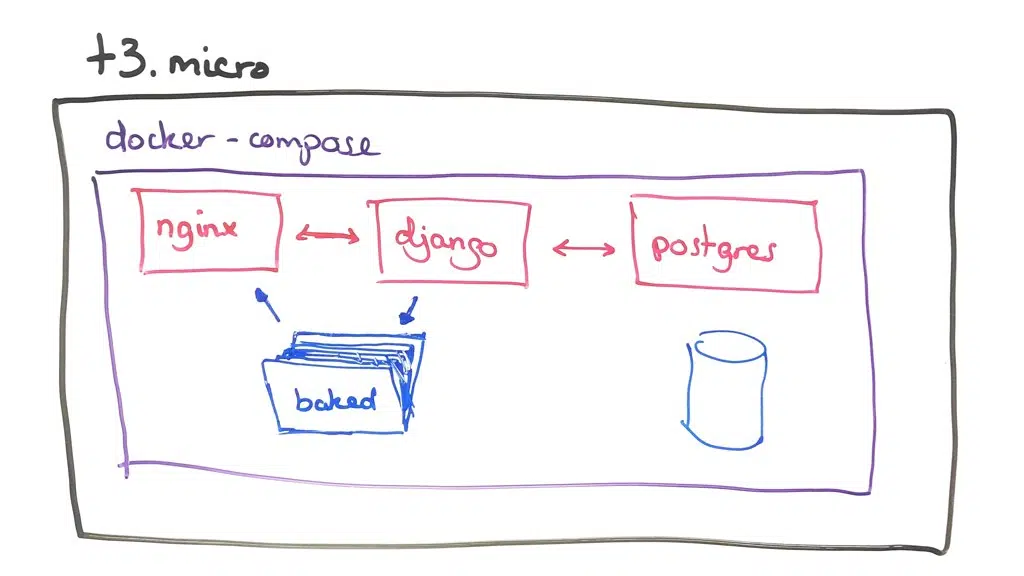 t3.micro
docker-compose
nginx
django
postgres
baked